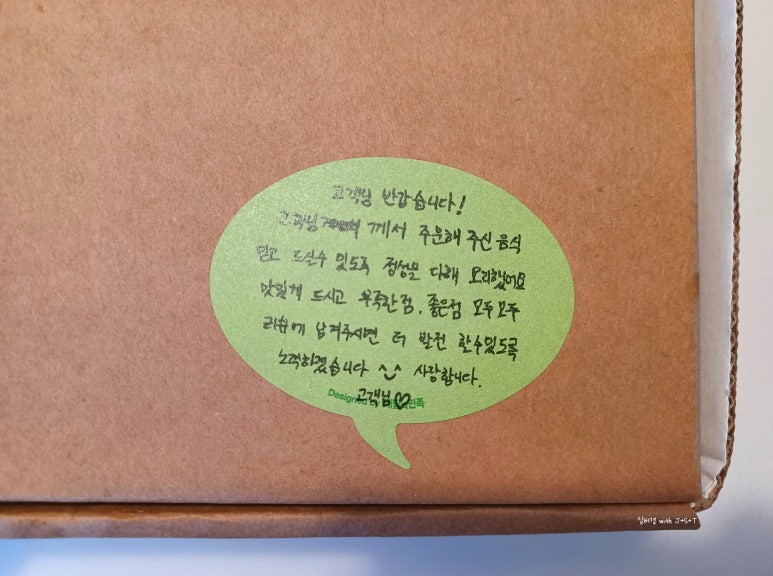 고객님 반갑습니다!
고객님 께서 주문해 주신 음식
믿고 드실수 있도록 정성을 다해 요리했어요
맛있게 드시고 부족한점, 좋은점 모두모두
리뷰에 남겨주시면 더 발전 할수있도록
노력하겠습니다 ^_^ 사랑합니다.
고객님♡
Designed
with J+S+T